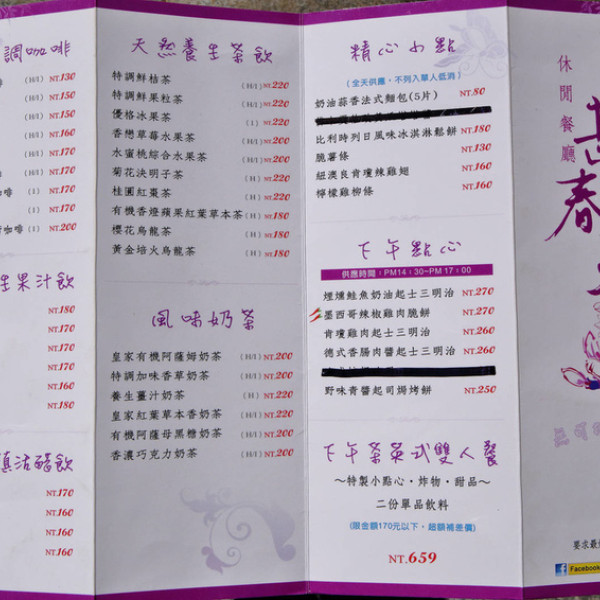 調咖啡
(H/I) NT.130
(I) NT.150
(H/I) NT.150
(H/I) NT.170
(H/I) NT.170
(H/I) NT.170
啡 (I) NT.170
咖啡 (I) NT.200
生果汁飲
NT.180
NT.170
NT.170
NT.170
NT.160
NT.180
活醋飲
NT.170
NT.160
NT.160
NT.160
天然養生茶飲
特調鮮桔茶 (H/I) NT.220
特調鮮果粒茶 (H/I) NT.220
優格冰果茶 (I) NT.220
香戀草莓水果茶 (H/I) NT.220
水蜜桃綜合水果茶 (H/I) NT.220
菊花決明子茶 (H) NT.220
桂圓紅棗茶 (H) NT.220
有機香橙蘋果紅葉草本茶 (H) NT.180
櫻花烏龍茶 (H) NT.180
黃金培火烏龍茶 (H) NT.180
風味奶茶
皇家有機阿薩姆奶茶 (H/I) NT.200
特調加味香草奶茶 (H/I) NT.200
養生薑汁奶茶 (H) NT.220
皇家紅葉草本香奶茶 (H/I) NT.200
有機阿薩母黑糖奶茶 (H/I) NT.200
香濃巧克力奶茶 (H/I) NT.200
精心小點
(全天供應，不列入單人低消)
奶油蒜香法式麵包(5片) NT.80
比利時列日風味冰淇淋鬆餅 NT.180
脆薯條 NT.130
紐澳良肯瓊辣雞翅 NT.160
檸檬雞柳條 NT.160
下午點心
供應時間：PM14：30~PM 17：00
煙燻鮭魚奶油起士三明治 NT.270
墨西哥辣椒雞肉脆餅 NT.270
肯瓊雞肉起士三明治 NT.260
德式香腸肉醬起士三明治 NT.260
野味青醬起司焗烤餅 NT.250
下午茶英式雙人餐
～特製小點心・炸物・甜品～
二份單品飲料
(限金額170元以下，超額補差價)
NT.659
休閒餐廳
春
要求最
Facebook